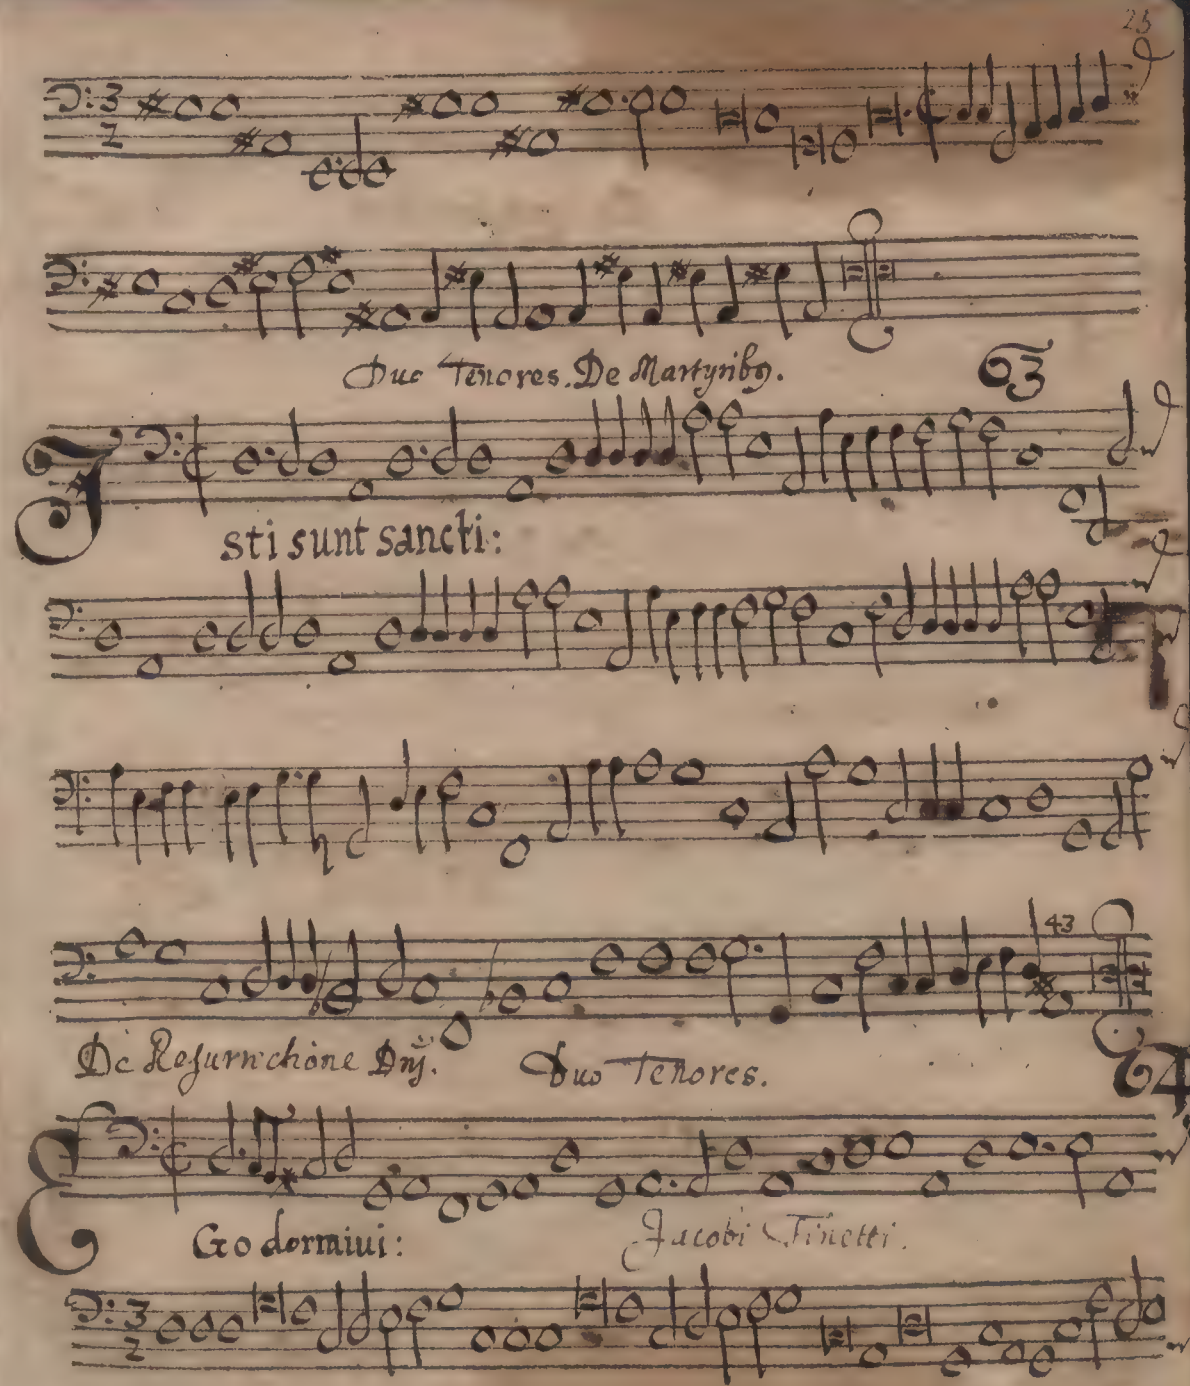 23
3
2
Duo Tenores. De Martyribꝯ.
63
Isti sunt sancti:
43
De Resurrectione Dnj. Duo Tenores.
64
EGo dormiui: Jacobi Finetti.
3
2